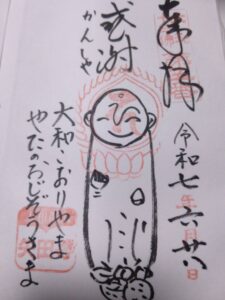 奉拝
令和七年六月廿八日
感謝
かんしゃ
大和こおりやま
やたのおじぞうさま